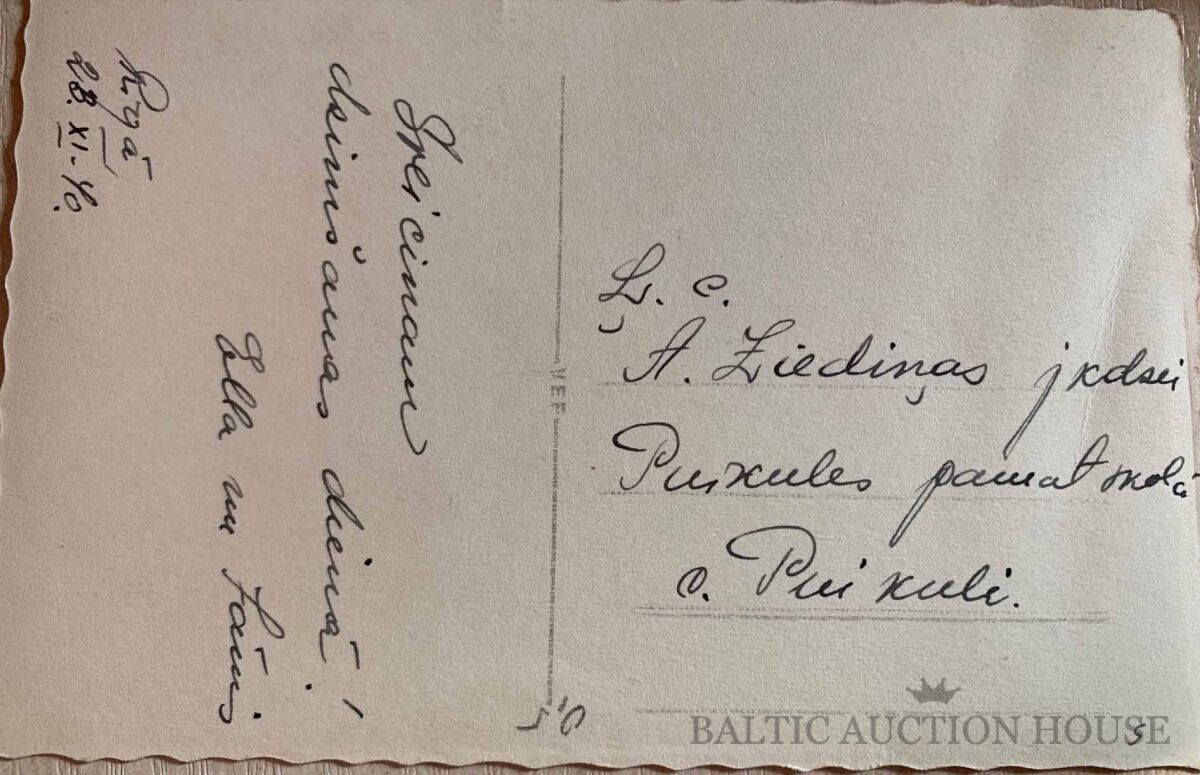 Rīgā
28. XI-40.
Sveicinam
dzimšanas dienā!
Ella un Jānis
VEF
Ļ. c.
A. Ziediņas jkdzei
Puikules pamatskolā
c. Puikuli.
BALTIC AUCTION HOUSE